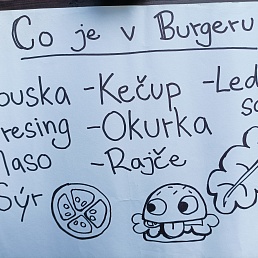 Co je v Burgeru
ouska -Kečup -Led
resing -Okurka
Maso -Rajče
Sýr